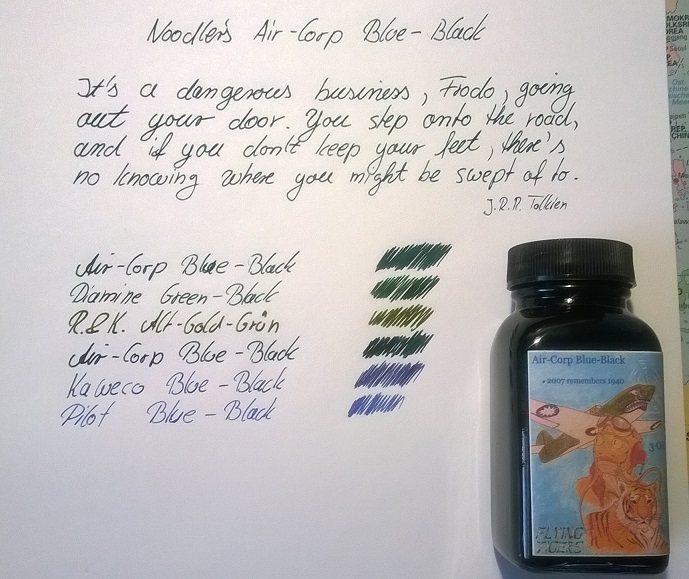 Noodler's Air-Corp Blue-Black
It's a dangerous business, Frodo, going
out your door. You step onto the road,
and if you don't keep your feet, there's
no knowing where you might be swept of to.
J.R.R. Tolkien
Air-Corp Blue-Black
Diamine Green-Black
R.&K. Alt-Gold-Grün
Air-Corp Blue-Black
Kaweco Blue-Black
Pilot Blue-Black
Air-Corp Blue-Black
2007 remembers 1940
FLYING
TIGERS